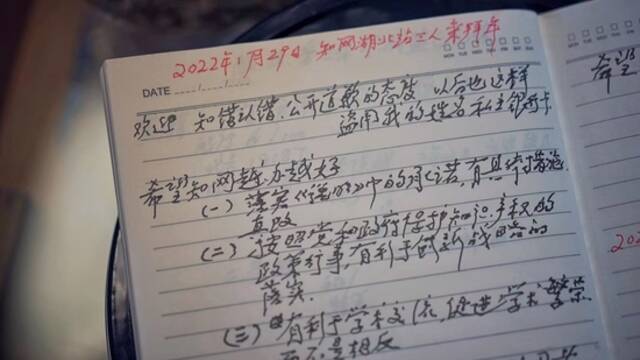 2022年1月29日 知网湖北站三人来拜年
DATE
欢迎 知错认错、公开道歉的态度 以后也这样
盗用我的姓名 私立银行卡
希望知网越办越好
(一) 落实《说明》中的承诺,有具体措施
真改
(二) 按照党和政府保护知识产权的
政策行事,有利于创新战略的
落实.
(三) 有利于学术交流,促进学术繁荣
而不是相反
希望
202